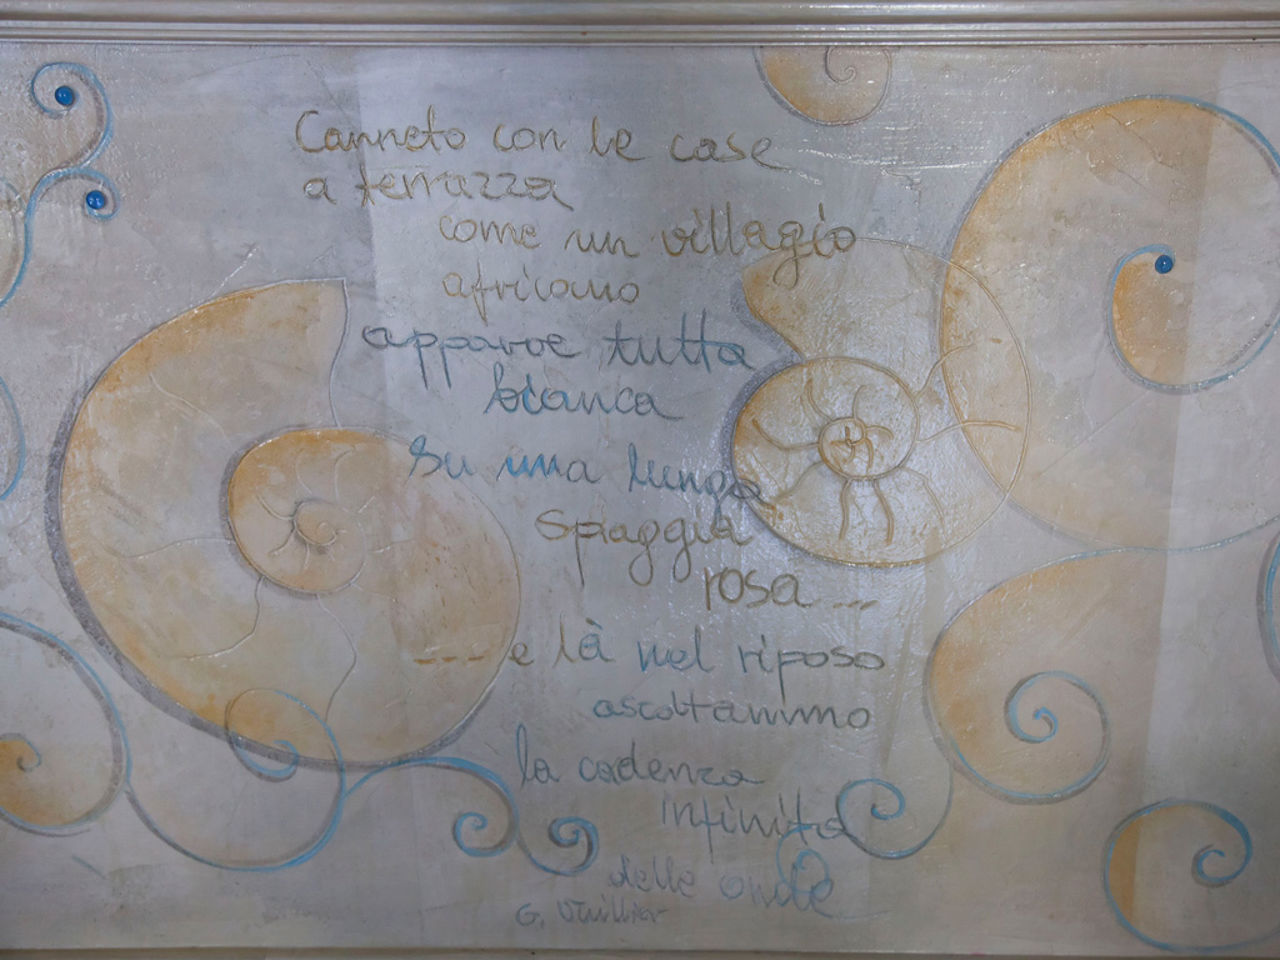 Canneto con le case
a terrazza
come un villagio
africano
apparve tutta
bianca
su una lunga
spiaggia
rosa ...
--- e là nel riposo
ascoltammo
la cadenza
infinita
delle onde
G. Vuillier